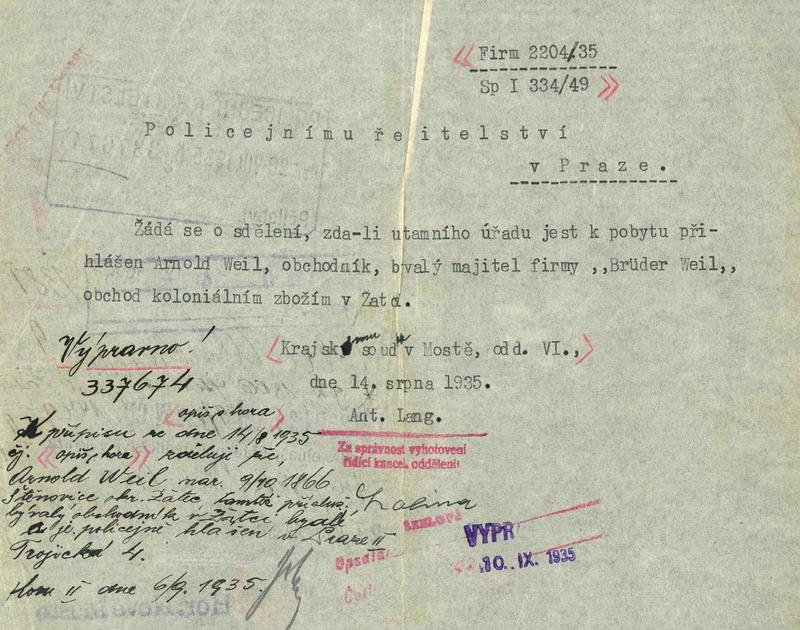 Firm 2204/35
Sp I 334/49
Policejnímu ředitelství
v Praze.
Žádá se o sdělení, zda-li utamního úřadu jest k pobytu při-
hlášen Arnold Weil, obchodník, bvalý majitel firmy ,,Brüder Weil,,
obchod koloniálním zbožím v Žatci.
Krajskému soudu v Mostě, odd. VI.,
dne 14. srpna 1935.
Ant. Lang.
Za správnost vyhotovení
řídící kancel. oddělení:
Výpravno!
337674
opiš s hora
K přípisu ze dne 14/8 1935
čj. opiš s hora sděluji že,
Arnold Weil nar. 9/10 1866
okr. Žatec tamtéž přísluš.
bývalý obchodník v Žatci, bydlí
a je policejně hlášen v Praze II
Trojická 4.
II dne 6/9. 1935.
Opsala
VYPR
10. IX. 1935